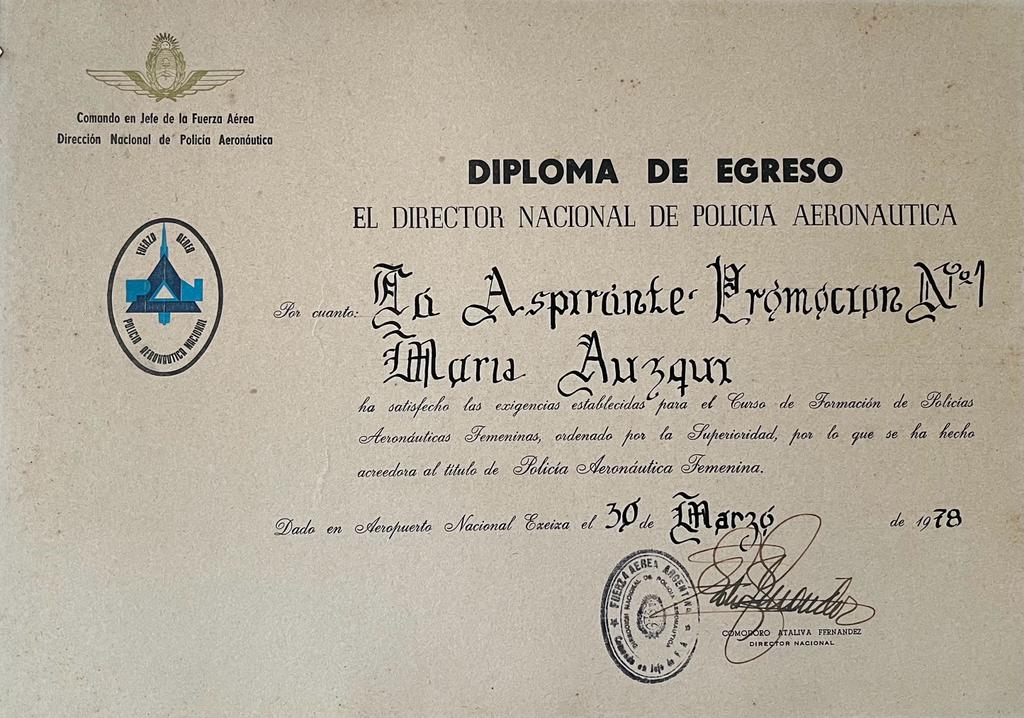 Comando en Jefe de la Fuerza Aérea
Dirección Nacional de Policía Aeronáutica
DIPLOMA DE EGRESO
EL DIRECTOR NACIONAL DE POLICIA AERONAUTICA
FUERZA AEREA
PAN
POLICIA AERONAUTICA NACIONAL
Por cuanto: La Aspirante Promoción Nº 1
Maria Auzqui
ha satisfecho las exigencias establecidas para el Curso de Formación de Policías
Aeronáuticas Femeninas, ordenado por la Superioridad, por lo que se ha hecho
acreedora al título de Policía Aeronáutica Femenina.
Dado en Aeropuerto Nacional Ezeiza el 30 de Marzo de 1978
FUERZA AEREA ARGENTINA
DIRECCION NACIONAL DE POLICIA AERONAUTICA
Comando en Jefe de F. A.
COMODORO ATALIVA FERNANDEZ
DIRECTOR NACIONAL